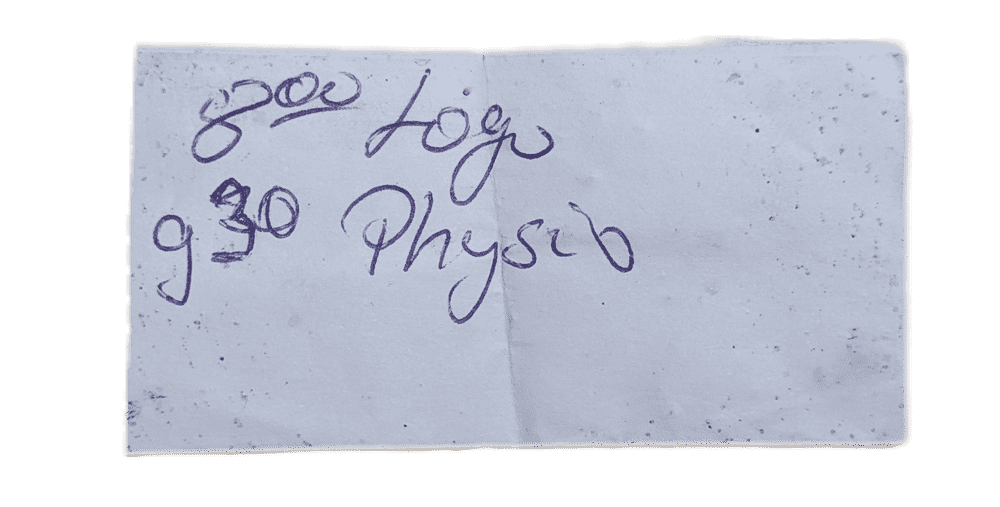 8⁰⁰ Logo
9³⁰ Physio